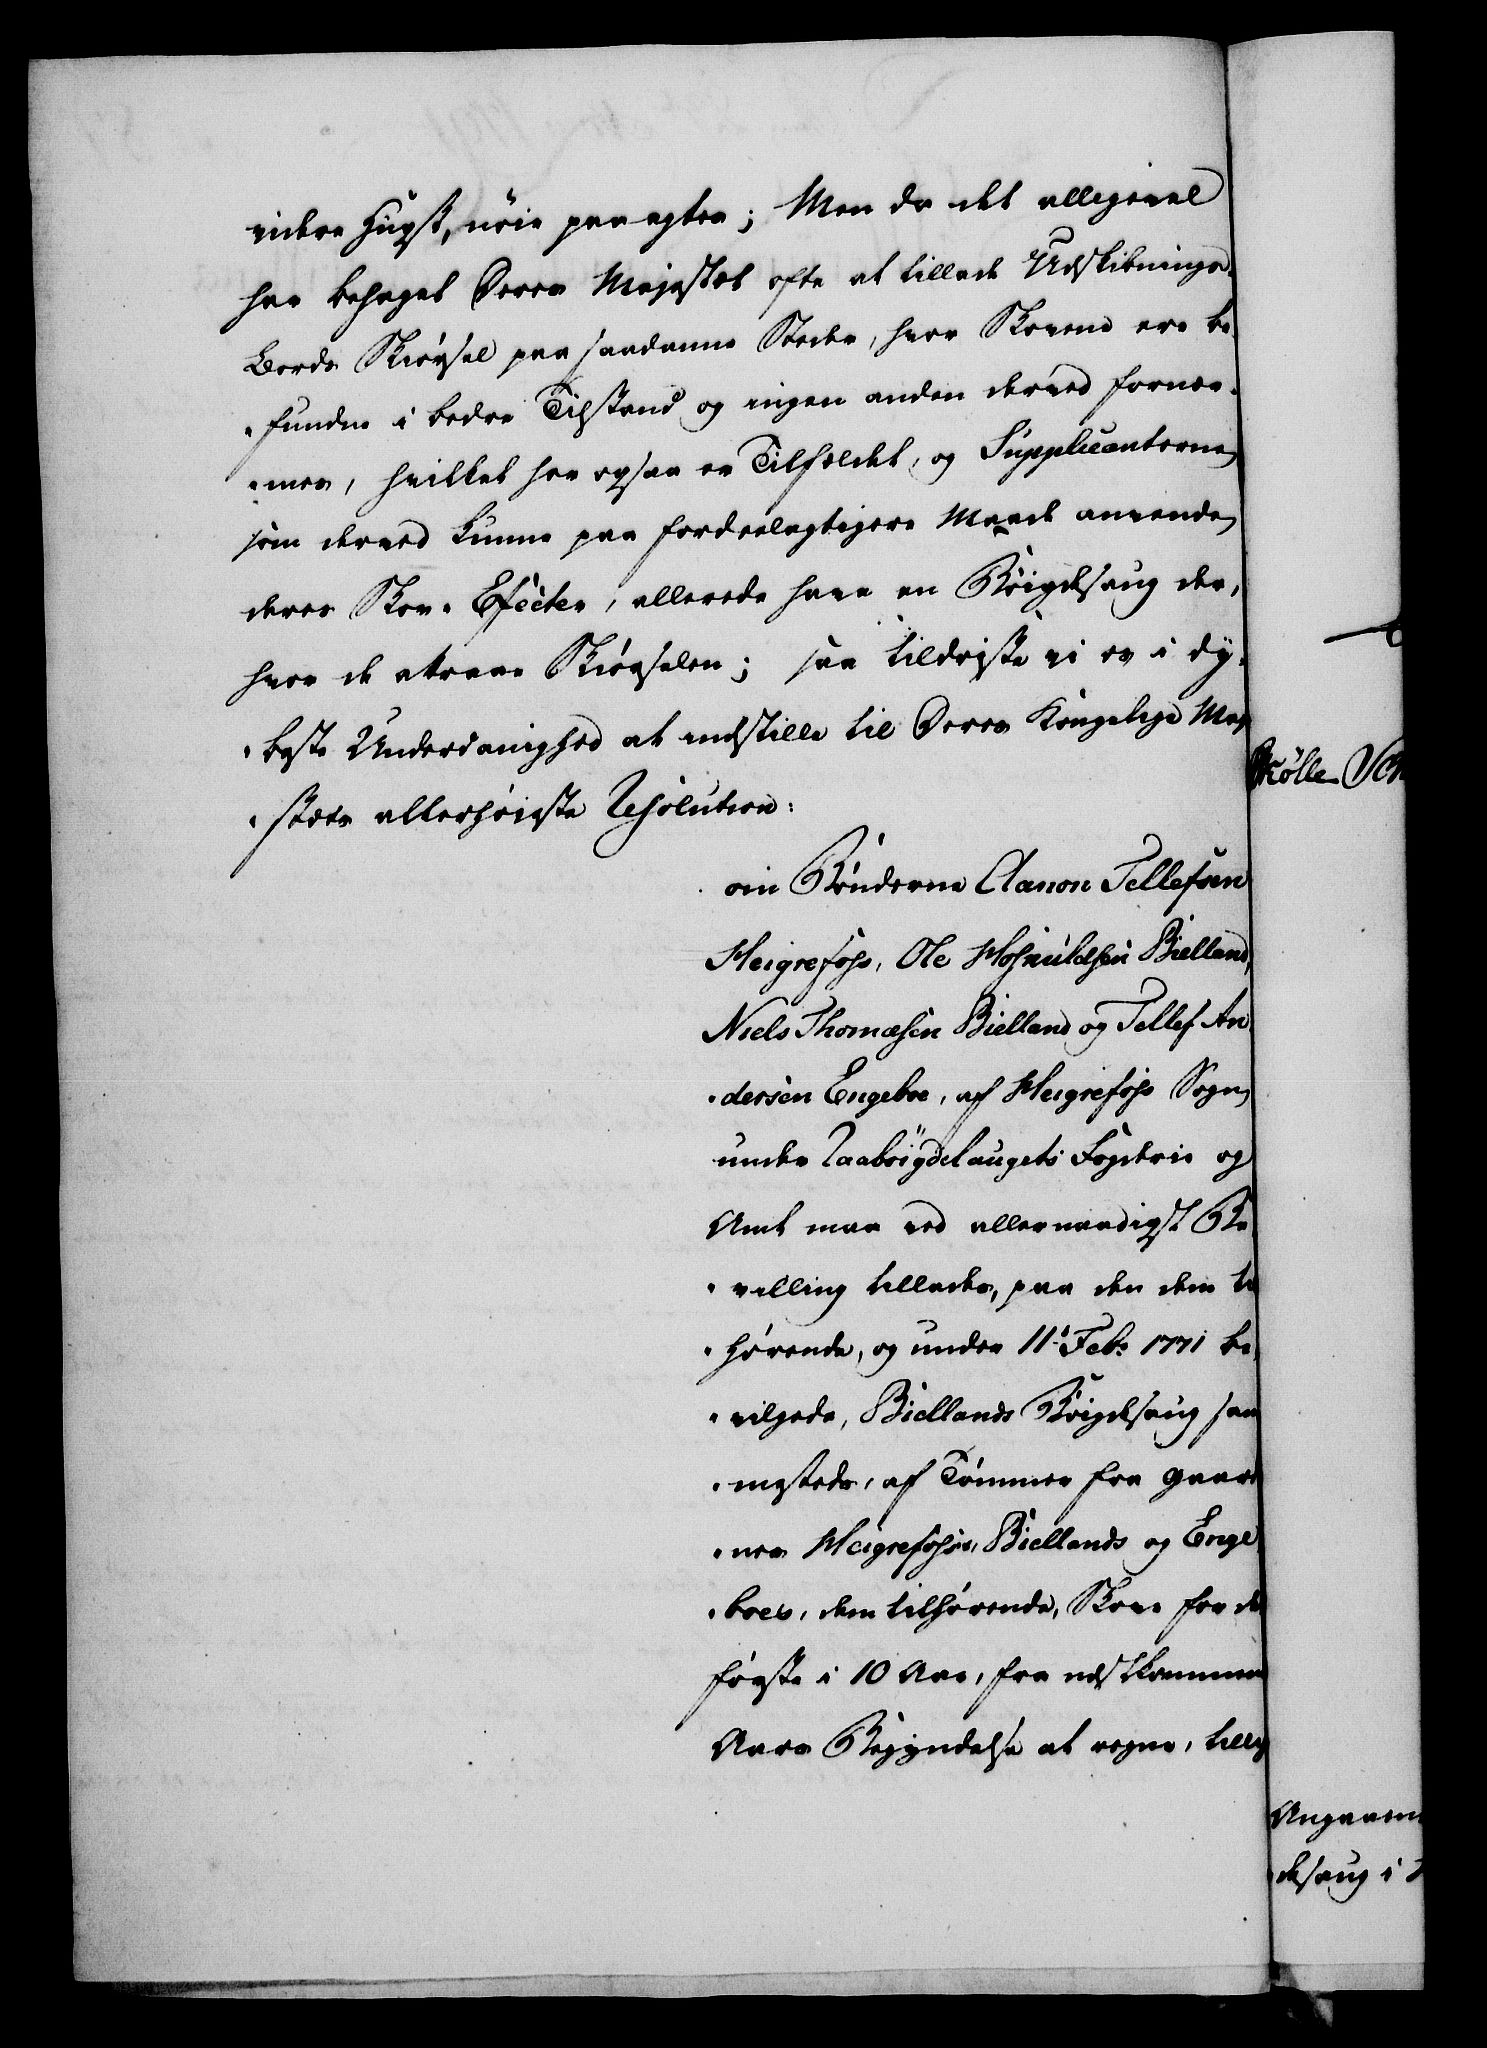 videre Hugst, nøie paa agtes; Men da det alligevel
har behaget Deres Majestæt ofte at tillade Udskibnings-
Bords Skiørsel paa saadanne Steder, hvor Skovene ere be-
funden i bedre Tilstand og ingen anden derved fornær-
mes, hvilket her ogsaa er Tilfældet, og Supplicanterne
som derved kunne paa fordeelagtigere Maade anvende
deres Skov-Efecter, allerede have en Bøigdesaug der,
hvor de attraae Skiørselen; saa tildriste vi os i dy-
beste Underdanighed at indstille til Deres Kongelige Maj
stæts allerhøieste Resolution:
om Bønderne Aanon Tellefsen
Heigrefoss, Ole Hosvuldsen Bielland,
Niels Thomæsen Bielland og Tellef An-
dersen Engeboe, af Heigrefoss Sogn
under Raabøigdelaugets Fogderie og
Amt maa ved allernaadigst Be-
villing tillades, paa den dem til
hørende, og under 11te Feb: 1771 be-
vilgede, Biellands Bøigdesaug sam
mesteds, af Tømmer fra Gaarde
nes Heigrefosses, Biellands og Enge
boes, dem tilhørende, Skove for de
første i 10 Aar, fra nestkommen
Aars Begyndelse at regne, tillig
Mølle
Angaaen
desaug i